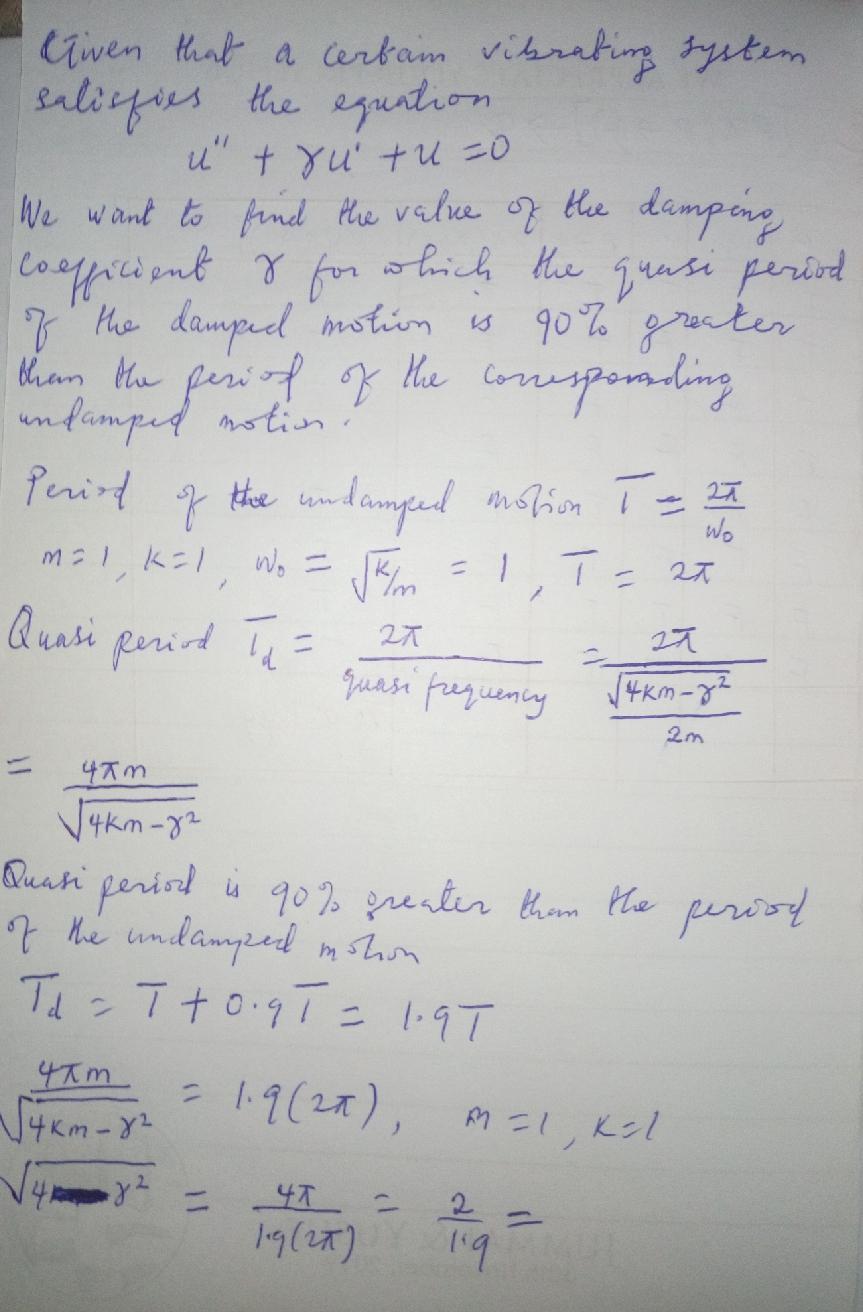 Given that a certain vibrating system
satisfies the equation
u'' + γu' + u = 0
We want to find the value of the damping
coefficient γ for which the quasi period
of the damped motion is 90% greater
than the period of the corresponding
undamped motion.
Period of the undamped motion T = 2π/W₀
m = 1, k = 1, W₀ = √k/m = 1, T = 2π
Quasi period T_d = 2π/quasi frequency = 2π/(√(4km-γ²)/2m)
= 4πm/√(4km-γ²)
Quasi period is 90% greater than the period
of the undamped motion
T_d = T + 0.9T = 1.9T
4πm/√(4km-γ²) = 1.9(2π), m = 1, k = 1
√(4 γ²) = 4π/1.9(2π) = 2/1.9 =